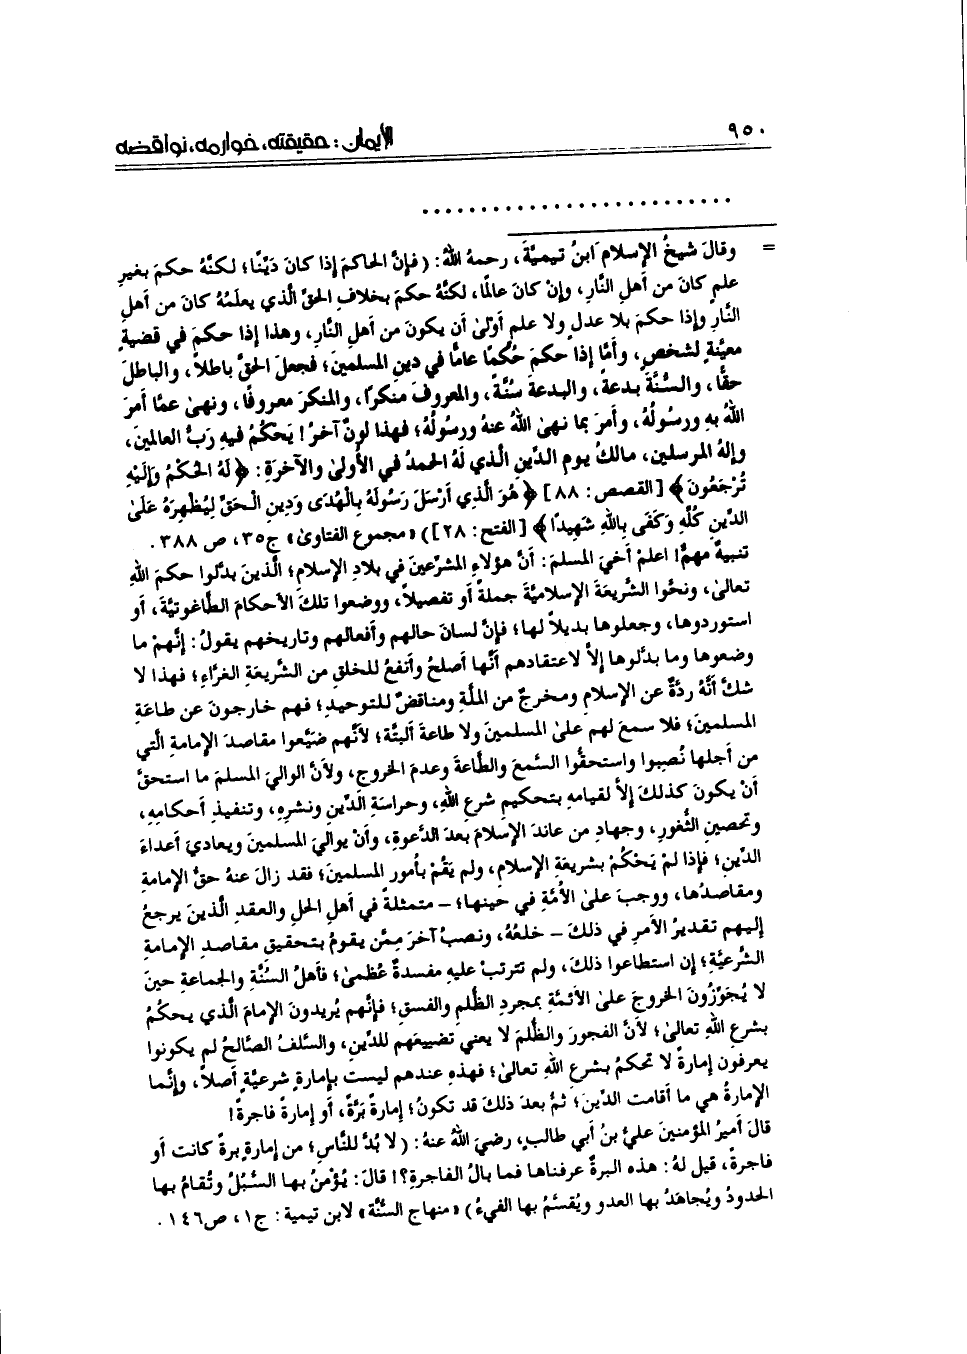 ٩٥٠ الإيمان: حقيقته، خوارمه، نواقضه
..........................
= وقالَ شيخُ الإسلام ابنُ تيميَّةَ، رحمهُ اللهُ: (فإنَّ الحاكمَ إذا كانَ دَيِّنًا؛ لكنَّهُ حكمَ بغيرِ
علمٍ كانَ من أهلِ النَّارِ، وإنْ كانَ عالمًا، لكنَّهُ حكمَ بخلافِ الحقِّ الَّذي يعلَمُهُ كانَ من أهلِ
النَّارِ وإذا حكمَ بلا عدلٍ ولا علمٍ أوْلىٰ أن يكونَ من أهلِ النَّارِ، وهذا إذا حكمَ في قضيةٍ
معيَّنةٍ لشخصٍ، وأمَّا إذا حكمَ حُكمًا عامًّا في دينِ المسلمينَ؛ فجعلَ الحقَّ باطلاً، والباطلَ
حقًّا، والسُّنَّةَ بدعةً، والبدعةَ سُنَّةً، والمعروفَ منكرًا، والمنكرَ معروفًا، ونهىٰ عمَّا أمرَ
اللهُ بهِ ورسُولُهُ، وأمرَ بما نهىٰ اللهُ عنهُ ورسُولُهُ؛ فهذا لونٌ آخرُ! يَحكُمُ فيهِ رَبُّ العالمينَ،
وإلهُ المرسلين، مالكُ يومِ الدِّينِ الَّذي لَهُ الحمدُ في الأُولىٰ والآخرَةِ: ﴿لَهُ الحُكْمُ وَإِلَيْهِ
تُرْجَعُونَ﴾ [القصص: ٨٨] ﴿هُوَ الَّذِي أَرْسَلَ رَسُولَهُ بِالْهُدَى وَدِينِ الْحَقِّ لِيُظْهِرَهُ عَلَىٰ
الدِّينِ كُلِّهِ وَكَفَى بِاللهِ شَهِيدًا﴾ [الفتح: ٢٨]) «مجموع الفتاوىٰ» ج٣٥، ص ٣٨٨.
تنبيهٌ مهمٌّ! اعلمْ أخيَ المسلمَ: أنَّ هؤلاءِ المشرِّعينَ في بلادِ الإسلامِ؛ الَّذينَ بدَّلوا حكمَ اللهِ
تعالىٰ، ونحَّوا الشَّريعَةَ الإسلاميَّةَ جملةً أو تفصيلاً، ووضعوا تلكَ الأحكامَ الطَّاغوتيَّةَ، أو
استوردوها، وجعلوها بديلاً لها؛ فإنَّ لسانَ حالهم وأفعالهم وتاريخهم يقولُ: إنَّهمْ ما
وضعوها وما بدَّلوها إلاَّ لاعتقادهم أنَّها أصلحُ وأنفعُ للخلقِ من الشَّريعَةِ الغرَّاءِ؛ فهذا لا
شكَّ أنَّهُ ردَّةٌ عن الإسلامِ ومخرجٌ من الملَّةِ ومناقضٌ للتوحيدِ؛ فهم خارجونَ عن طاعَةِ
المسلمينَ؛ فلا سمعَ لهم علىٰ المسلمينَ ولا طاعةَ ألبتَّة؛ لأنَّهم ضيَّعوا مقاصدَ الإمامةِ الَّتي
من أجلها نُصبوا واستحقُّوا السَّمعَ والطَّاعةَ وعدمَ الخروجِ، ولأنَّ الواليَ المسلمَ ما استحقَّ
أنْ يكونَ كذلكَ إلاَّ لقيامِهِ بتحكيمِ شرعِ اللهِ، وحراسَةِ الدِّينِ ونشرِهِ، وتنفيذِ أحكامِهِ،
وتحصينِ الثُّغورِ، وجهادِ من عاندَ الإسلامَ بعدَ الدَّعوةِ، وأنْ يواليَ المسلمينَ ويعاديَ أعداءَ
الدِّينِ؛ فإذا لمْ يَحكُمْ بشريعَةِ الإسلامِ، ولم يَقُمْ بأمورِ المسلمينَ؛ فقد زالَ عنهُ حقُّ الإمامةِ
ومقاصدُها، ووجبَ علىٰ الأُمَّةِ في حينها؛ – متمثلةً في أهلِ الحلِ والعقدِ الَّذينَ يرجعُ
إليهم تقديرُ الأمرِ في ذلكَ – خلعُهُ، ونصبُ آخرَ مِمَّن يقومُ بتحقيقِ مقاصدِ الإمامةِ
الشَّرعيَّةِ؛ إن استطاعوا ذلكَ، ولم تترتبْ عليهِ مفسدةٌ عُظمىٰ؛ فأهلُ السُّنَّةِ والجماعةِ حينَ
لا يُجَوِّزُونَ الخروجَ علىٰ الأئمَّةِ بمجردِ الظُّلمِ والفسقِ؛ فإنَّهم يُريدونَ الإمامَ الَّذي يحكُمُ
بشرعِ اللهِ تعالىٰ؛ لأنَّ الفجورَ والظُّلمَ لا يعني تضييعَهم للدِّينِ، والسَّلفُ الصَّالحُ لم يكونوا
يعرفون إمارةً لا تحكمُ بشرعِ اللهِ تعالىٰ؛ فهذهِ عندهم ليستْ بإمارةٍ شرعيَّةٍ أصلاً، وإنَّما
الإمارةُ هي ما أقامت الدِّينَ؛ ثمَّ بعدَ ذلكَ قد تكونُ؛ إمارةً بَرَّةً، أو إمارةً فاجرةً!
قالَ أميرُ المؤمنين عليُّ بنُ أبي طالبٍ، رضيَ اللهُ عنهُ: (لا بُدَّ للنَّاسِ؛ من إمارةٍ برةً كانت أو
فاجرةً، قيل لهُ: هذه البرةٌ عرفناها فما بالُ الفاجرةِ؟! قالَ: يُؤْمنُ بها السُّبُلُ وتُقامُ بها
الحدودُ ويُجاهَدُ بها العدو ويُقسَّمُ بها الفيءُ) «منهاج السُّنَّة» لابن تيمية: ج١، ص١٤٦.